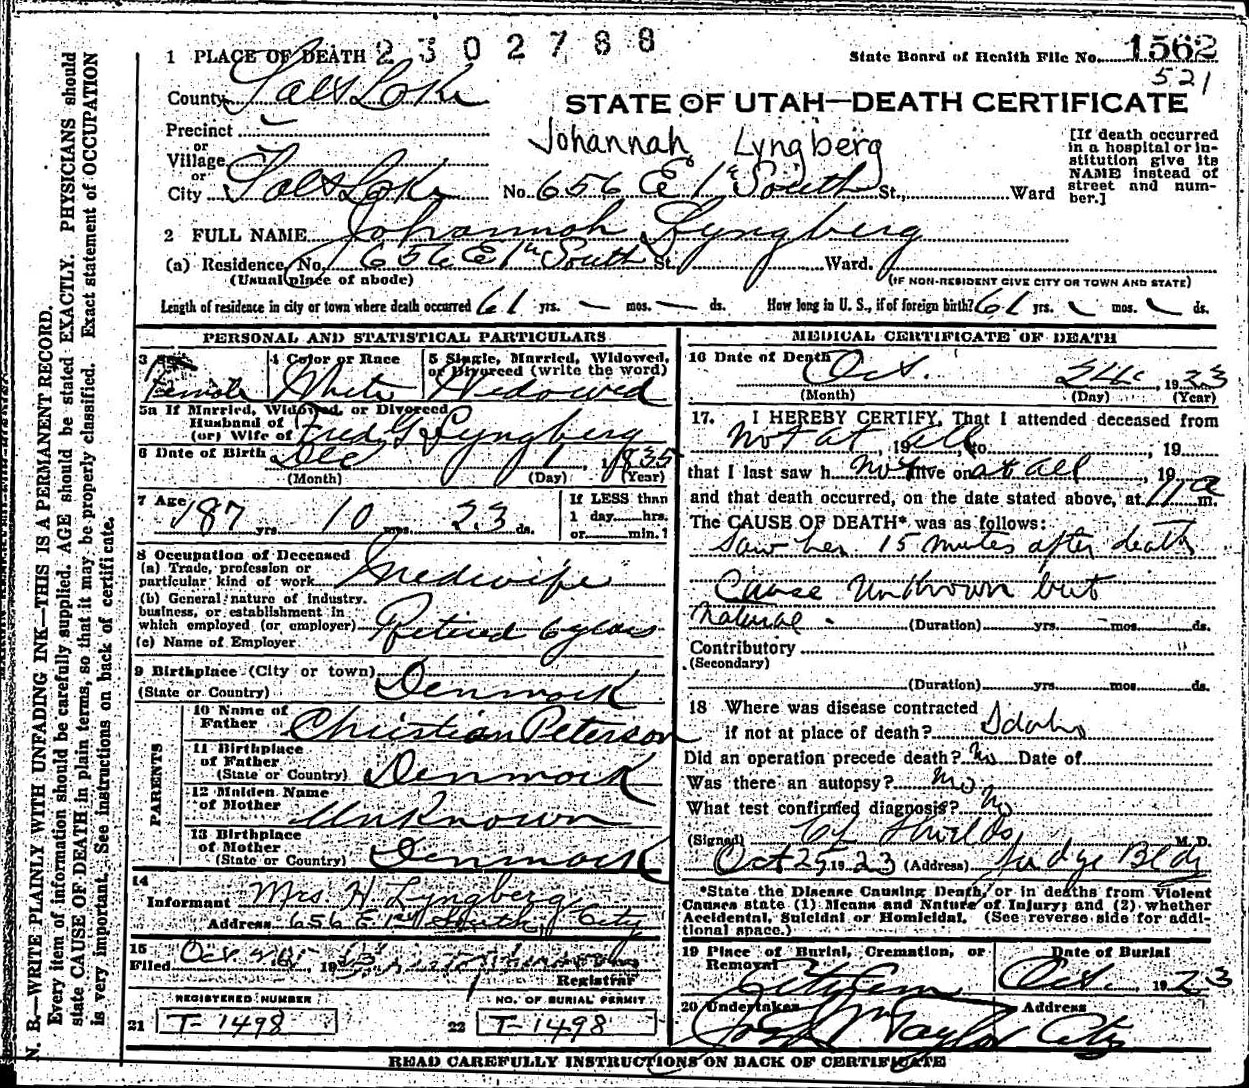 1 PLACE OF DEATH 2302788
State Board of Health File No. 1562
521
County Salt Lake
STATE OF UTAH—DEATH CERTIFICATE
Precinct
or
Village
or
City Salt Lake
Johannah Lyngberg
No. 656 E 1st South St., Ward
[If death occurred
in a hospital or in-
stitution give its
NAME instead of
street and num-
ber.]
2 FULL NAME Johannah Lyngberg
(a) Residence, No. 656 E 1st South St. Ward.
(Usual place of abode) (IF NON-RESIDENT GIVE CITY OR TOWN AND STATE)
Length of residence in city or town where death occurred 61 yrs. — mos. — ds. How long in U. S., if of foreign birth? 61 yrs. mos. ds.
PERSONAL AND STATISTICAL PARTICULARS
3 Sex Female
4 Color or Race White
5 Single, Married, Widowed,
or Divorced (write the word)
Widowed
5a If Married, Widowed, or Divorced
Husband of
(or) Wife of Fred G Lyngberg
6 Date of Birth Dec 1, 1835
(Month) (Day) (Year)
7 Age 87 yrs. 10 mos. 23 ds.
If LESS than
1 day......hrs.
or......min.?
8 Occupation of Deceased
(a) Trade, profession or
particular kind of work Medwife
(b) General nature of industry,
business, or establishment in
which employed (or employer) Retired 6 years
(c) Name of Employer
9 Birthplace (City or town)
(State or Country) Denmark
PARENTS
10 Name of
Father Christian Peterson
11 Birthplace
of Father
(State or Country) Denmark
12 Maiden Name
of Mother Unknown
13 Birthplace
of Mother
(State or Country) Denmark
14
Informant Mrs. H Lyngberg
Address 656 E 1st South City
15
Filed Oct 1923
Registrar
REGISTERED NUMBER
21 T-1498
NO. OF BURIAL PERMIT
22 T-1498
MEDICAL CERTIFICATE OF DEATH
16 Date of Death Oct. 24, 1923
(Month) (Day) (Year)
17. I HEREBY CERTIFY, That I attended deceased from
not at, 19 all, to, 19
that I last saw h not alive on at all, 19
and that death occurred, on the date stated above, at 11 a m.
The CAUSE OF DEATH* was as follows:
Saw her 15 minutes after death
Cause unknown but
natural. (Duration) yrs. mos. ds.
Contributory
(Secondary)
(Duration) yrs. mos. ds.
18 Where was disease contracted
if not at place of death? Idaho
Did an operation precede death? No Date of
Was there an autopsy? No
What test confirmed diagnosis? No
(Signed) M.D.
Oct 25, 1923 (Address) Judge Bldg
*State the Disease Causing Death, or in deaths from Violent
Causes state (1) Means and Nature of Injury; and (2) whether
Accidental, Suicidal or Homicidal. (See reverse side for addi-
tional space.)
19 Place of Burial, Cremation, or
Removal City Cem
Date of Burial
Oct. 1923
20 Undertaker Jos Wm Taylor
Address City
READ CAREFULLY INSTRUCTIONS ON BACK OF CERTIFICATE
N. B.—WRITE PLAINLY WITH UNFADING INK—THIS IS A PERMANENT RECORD.
Every item of information should be carefully supplied. AGE should be stated EXACTLY. PHYSICIANS should
state CAUSE OF DEATH in plain terms, so that it may be properly classified. Exact statement of OCCUPATION
is very important. See instructions on back of certificate.